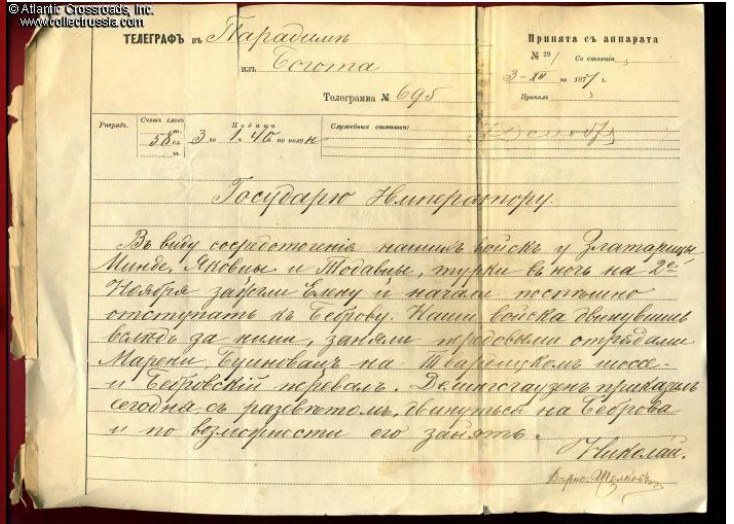 © Atlantic Crossroads, Inc.
www.collectrussia.com
ТЕЛЕГРАФЪ въ Парадимъ
изъ Богота
Телеграмма № 695
Принята съ аппарата
№ 29 Со станціи
3-XII го 1877 г.
Принялъ
Разрядъ. Счетъ словъ Подача Служебныя отмѣтки:
58 3 го 1 ч. 40 по полун
Государю Императору.
Въ виду сосредоточенія нашихъ войскъ у Златарицы
Минде, Яковцы и Тодавцы, турки въ ночь на 2ое
Ноября зажгли Елену и начали поспѣшно
отступать къ Беброву. Наши войска двинувшись
вслѣдъ за ними, заняли передовыми отрядами
Марени Буиновац на Твардицкомъ шоссе
и Бебровскій перевалъ. Делинсгаузенъ приказалъ
сегодня съ разсвѣтомъ, двинуться на Беброва
и по возможности его занять.
Николай.
Вѣрно: